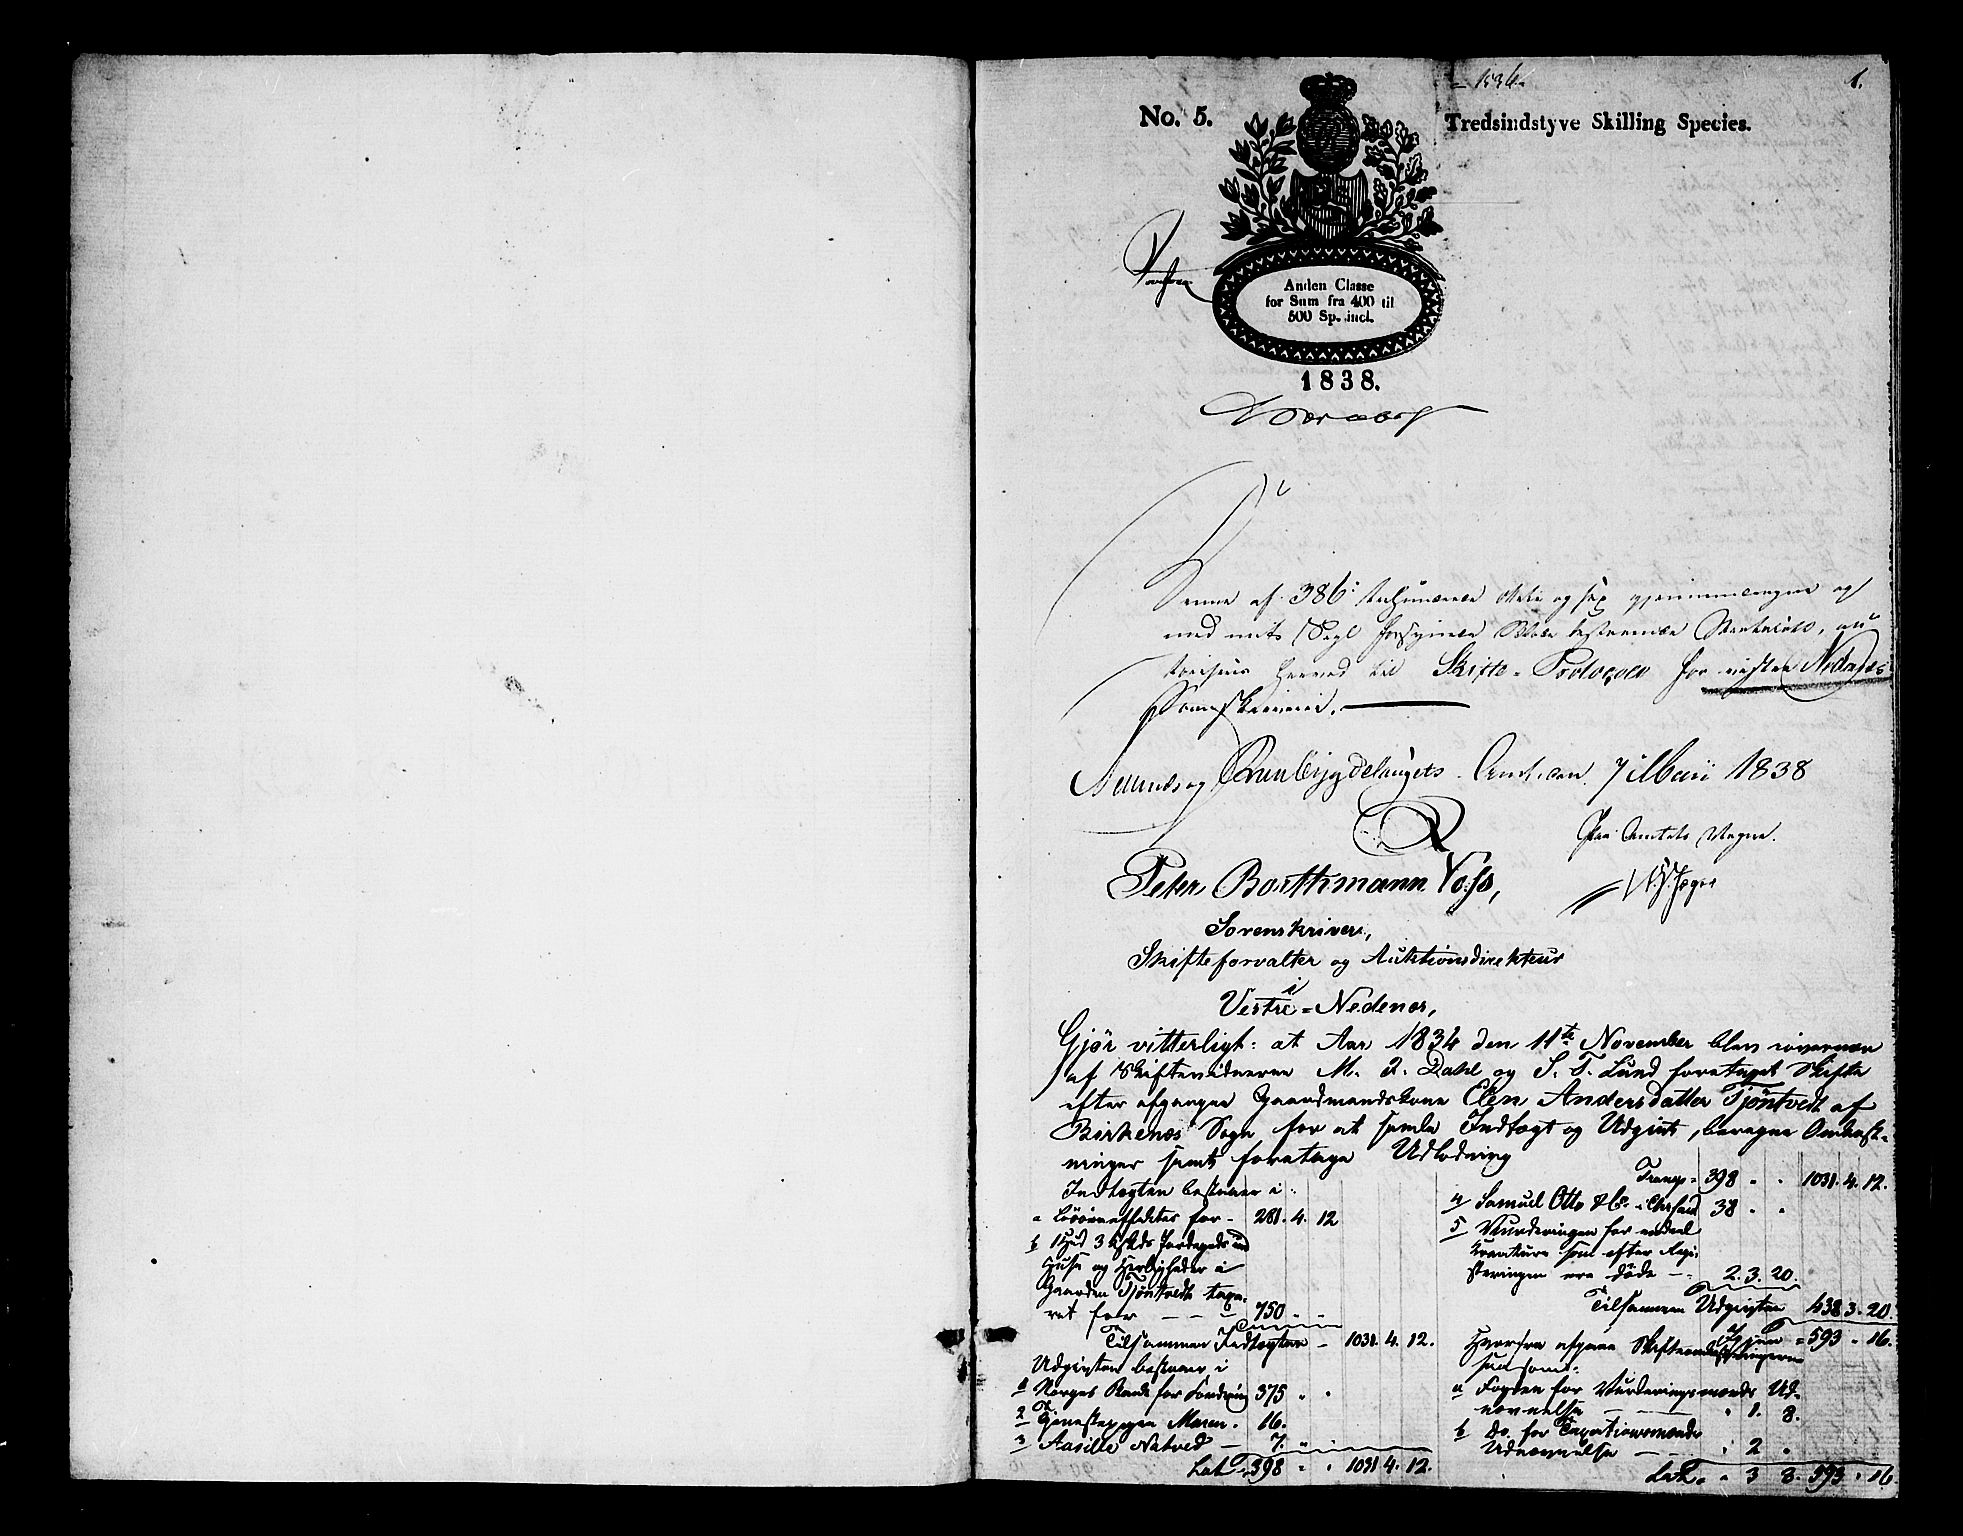 1.
No. 5.
Tredsindstyve Skilling Species.
Anden Classe
for Sum fra 400 til
500 Sp. incl.
1838.
Denne af 386 tre hundrede otte og sex gjennemdragne og
med mit Segl forsynede Blade bestaaende, au
toriseres herved til Skifte-Protocol for vestre Nedenes
Sorenskriveri.
Nedenes og Raabygdelaugets Amt den 7 Marii 1838
Paa Amtets Vegne.
Peter Borthmann Voss,
Sorenskriver,
Skifteforvalter og Auktionsdirekteur
i
Vestre-Nedenes,
Gjør vitterligt: at Aar 1834 den 11te November blev
af Skiftevidnerne M. J. Dahl og S. T. Lund foretaget Skifte
efter afgangne Gaardmandskone Elen Andersdatter Tjøntvedt af
Birkenes Sogn for at samle Indtægt og Udgivt, beregne Omkost-
ninger samt foretage Udlodning
Indtægten bestaaer i:
a Løsøreeffecter for - 281. 4. 12
b 1 Hud 3 Jordegods med
Huse og Herligheder i
Gaarden Tjøntvedt taxe-
ret for - - 750 " "
Tilsammen Indtægten - 1031. 4. 12.
Udgivten bestaaer i
1 Norges Bank for Fordring 375 " "
2 Tjenestepigen Maren - 16.
3 Aasille Natved - 7. " "
Lat. 398 " " 1031 4. 12.
Transp. 398 " " 1031. 4. 12.
4 Samuel Otto & Co i Chrsand 38 " "
5 Vurderingen for endeel
Creature som efter Regi-
streringen ere døde - 2. 3. 20.
Tilsammen Udgivten 438 3. 20.
Herfra afgaae Skifteomkostningerne 593 " 16.
saasom:
a Fogden for Vurderingsmænds Ud-
nævnelse - " 1. 8.
b Do. for Taxationsmænds
Udnævnelse - " 2 "
Lat. " 3 8. 593 " 16.